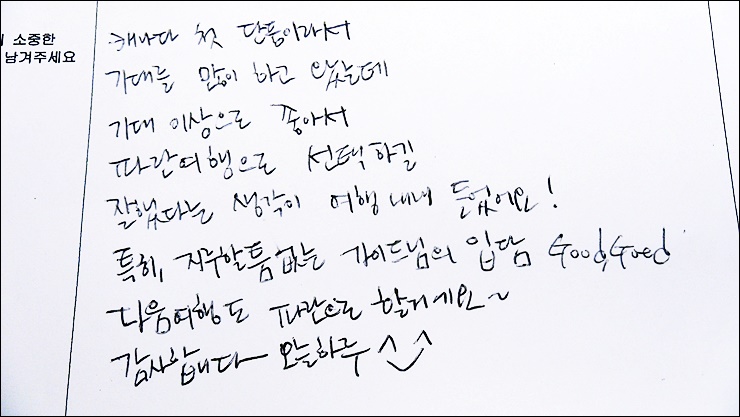 소중한
남겨주세요
캐나다 첫 단풍이라서
기대를 많이 하고 왔는데
기대 이상으로 좋아서
파란여행으로 선택하길
잘했다는 생각이 여행 내내 들었어요!
특히, 지루할틈없는 가이드님의 입담 Good,Good
다음여행도 파란으로 할거에요~
감사합니다~ 오늘하루 ^‿^